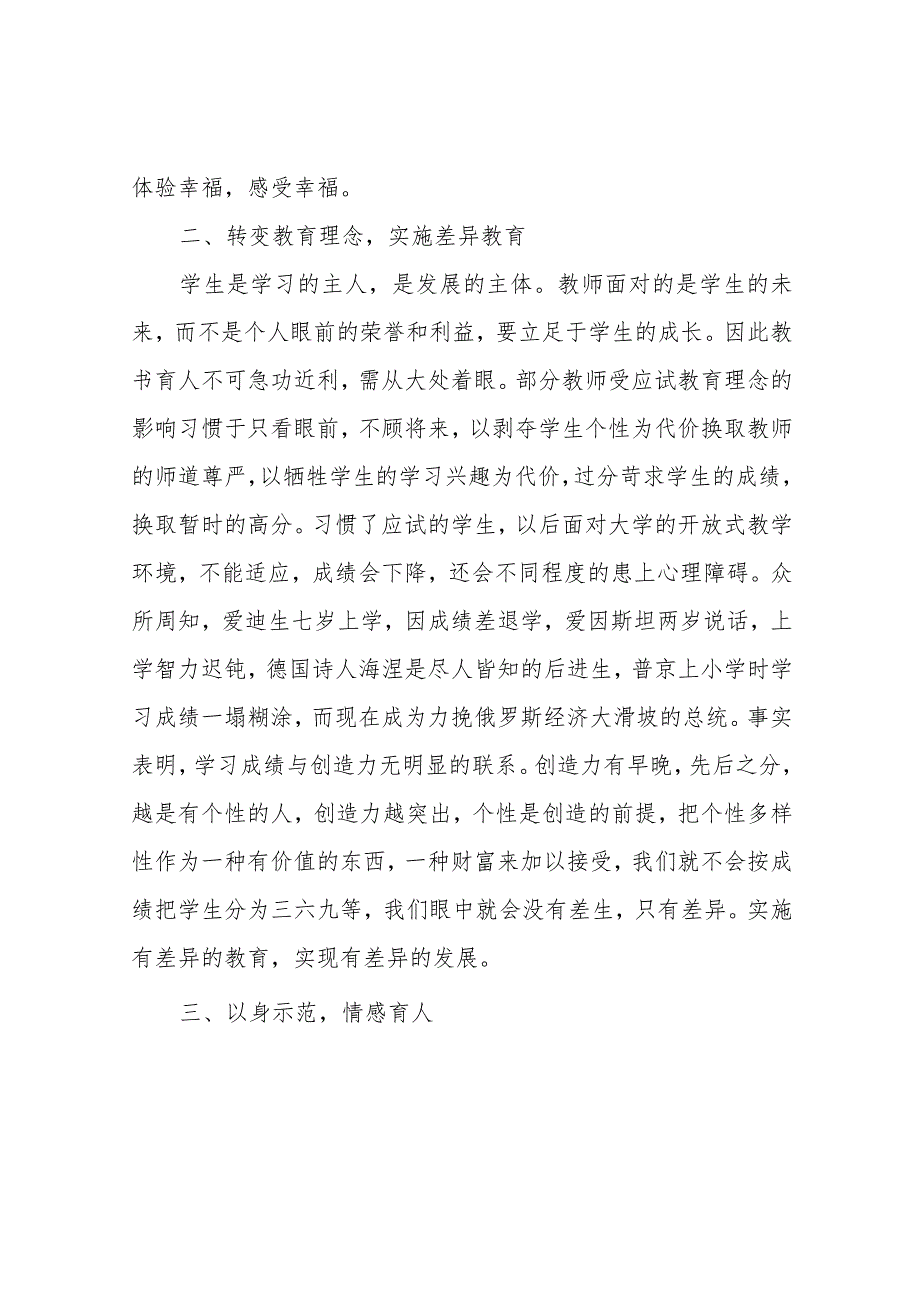 体验幸福，感受幸福。
二、转变教育理念，实施差异教育
学生是学习的主人，是发展的主体。教师面对的是学生的未
来，而不是个人眼前的荣誉和利益，要立足于学生的成长。因此教
书育人不可急功近利，需从大处着眼。部分教师受应试教育理念的
影响习惯于只看眼前，不顾将来，以剥夺学生个性为代价换取教师
的师道尊严，以牺牲学生的学习兴趣为代价，过分苛求学生的成绩，
换取暂时的高分。习惯了应试的学生，以后面对大学的开放式教学
环境，不能适应，成绩会下降，还会不同程度的患上心理障碍。众
所周知，爱迪生七岁上学，因成绩差退学，爱因斯坦两岁说话，上
学智力迟钝，德国诗人海涅是尽人皆知的后进生，普京上小学时学
习成绩一塌糊涂，而现在成为力挽俄罗斯经济大滑坡的总统。事实
表明，学习成绩与创造力无明显的联系。创造力有早晚，先后之分，
越是有个性的人，创造力越突出，个性是创造的前提，把个性多样
性作为一种有价值的东西，一种财富来加以接受，我们就不会按成
绩把学生分为三六九等，我们眼中就会没有差生，只有差异。实施
有差异的教育，实现有差异的发展。
三、以身示范，情感育人